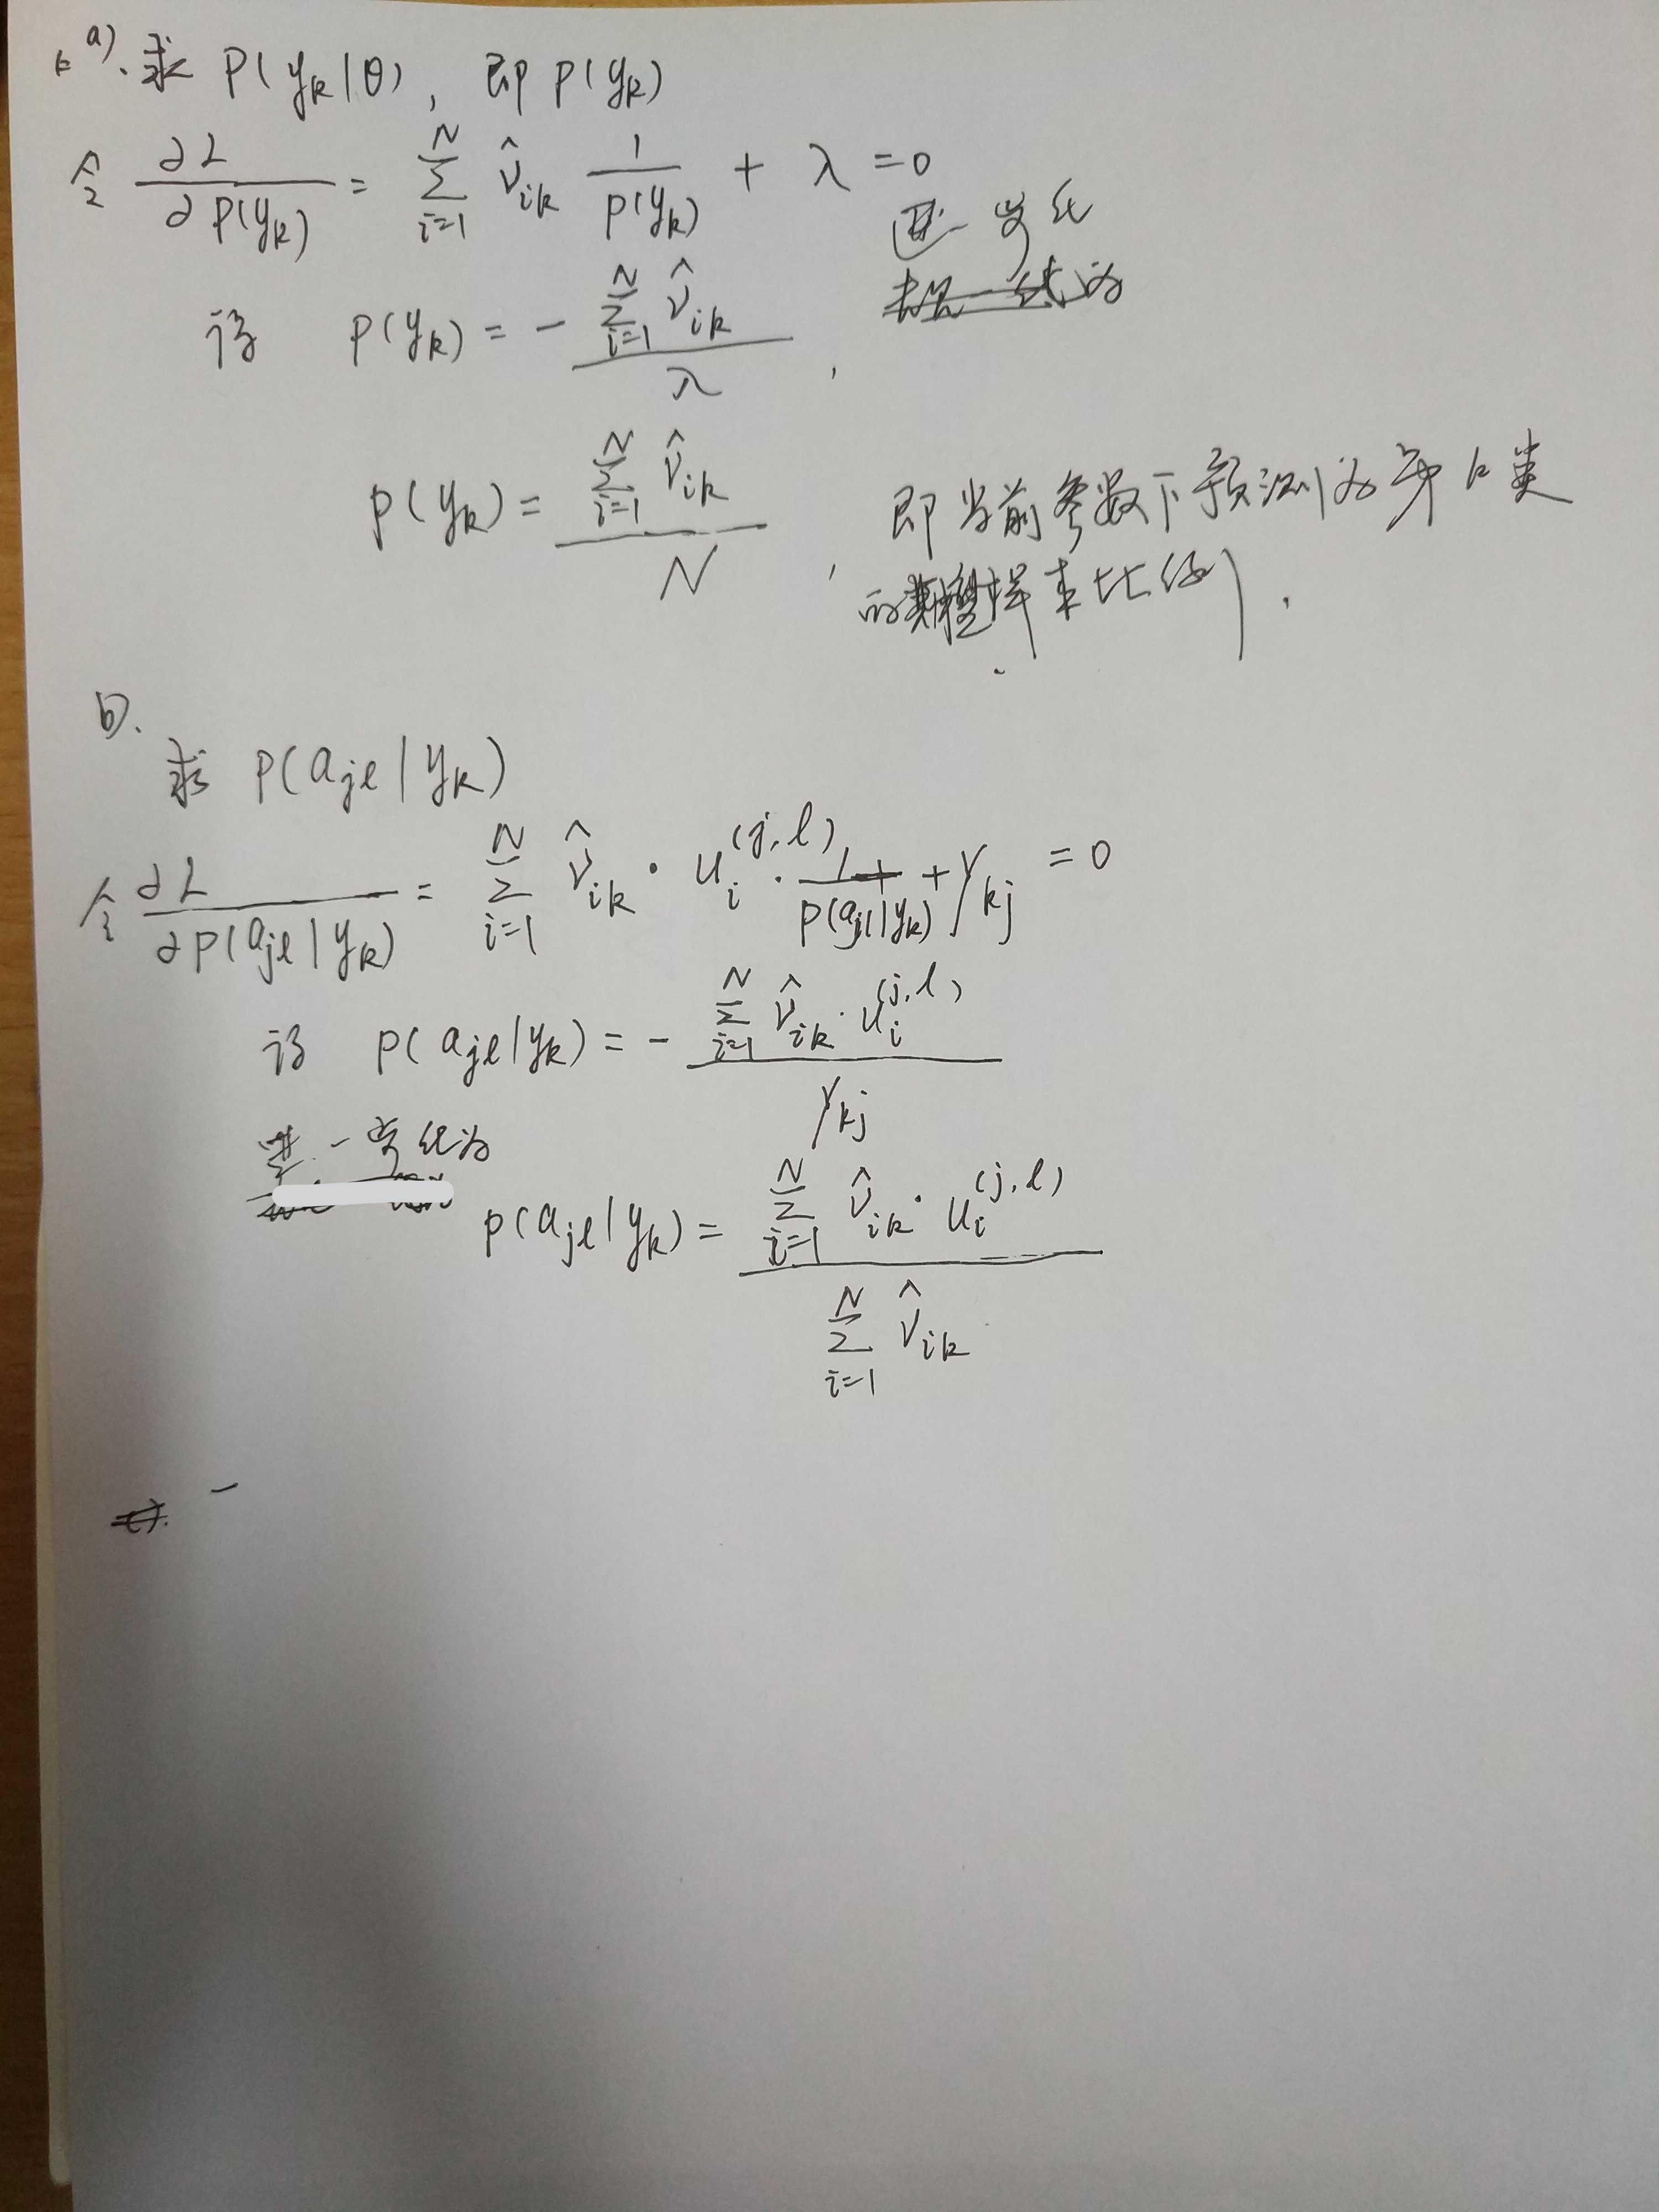 a). 求 P(y_k|θ), 即 P(y_k)
令 ∂L/∂P(y_k) = Σ_{i=1}^{N} v̂_{ik} 1/P(y_k) + λ = 0
归一化
为
得 P(y_k) = - Σ_{i=1}^{N} v̂_{ik} / λ ,
P(y_k) = Σ_{i=1}^{N} v̂_{ik} / N , 即当前参数下预测为第k类
的期望样本比例.
b).
求 P(a_{jl}|y_k)
令 ∂L/∂P(a_{jl}|y_k) = Σ_{i=1}^{N} v̂_{ik} · u_i^{(j,l)} · 1/P(a_{jl}|y_k) + γ_{kj} = 0
得 P(a_{jl}|y_k) = - Σ_{i=1}^{N} v̂_{ik} · u_i^{(j,l)} / γ_{kj}
归一化为
P(a_{jl}|y_k) = Σ_{i=1}^{N} v̂_{ik} · u_i^{(j,l)} / Σ_{i=1}^{N} v̂_{ik}